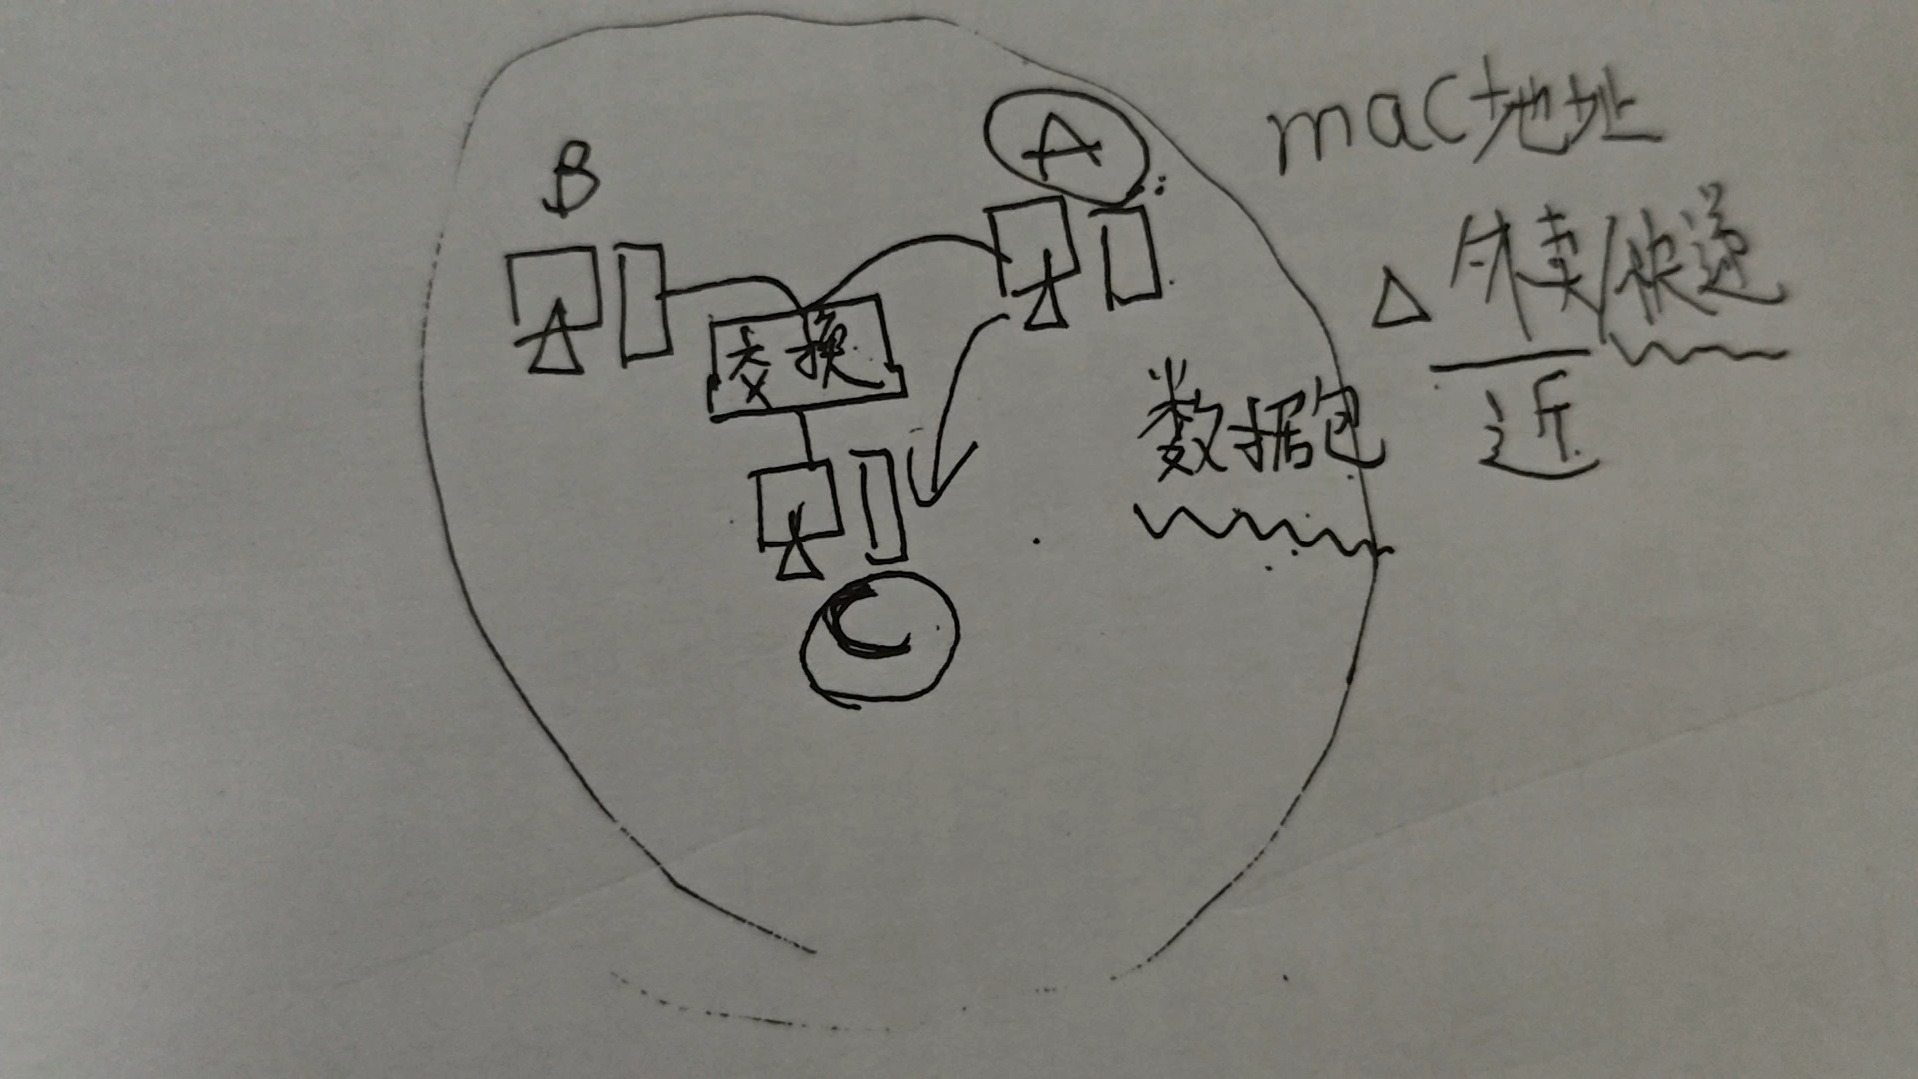 A
mac地址
B
外卖/快递
交换
数据包
近
C